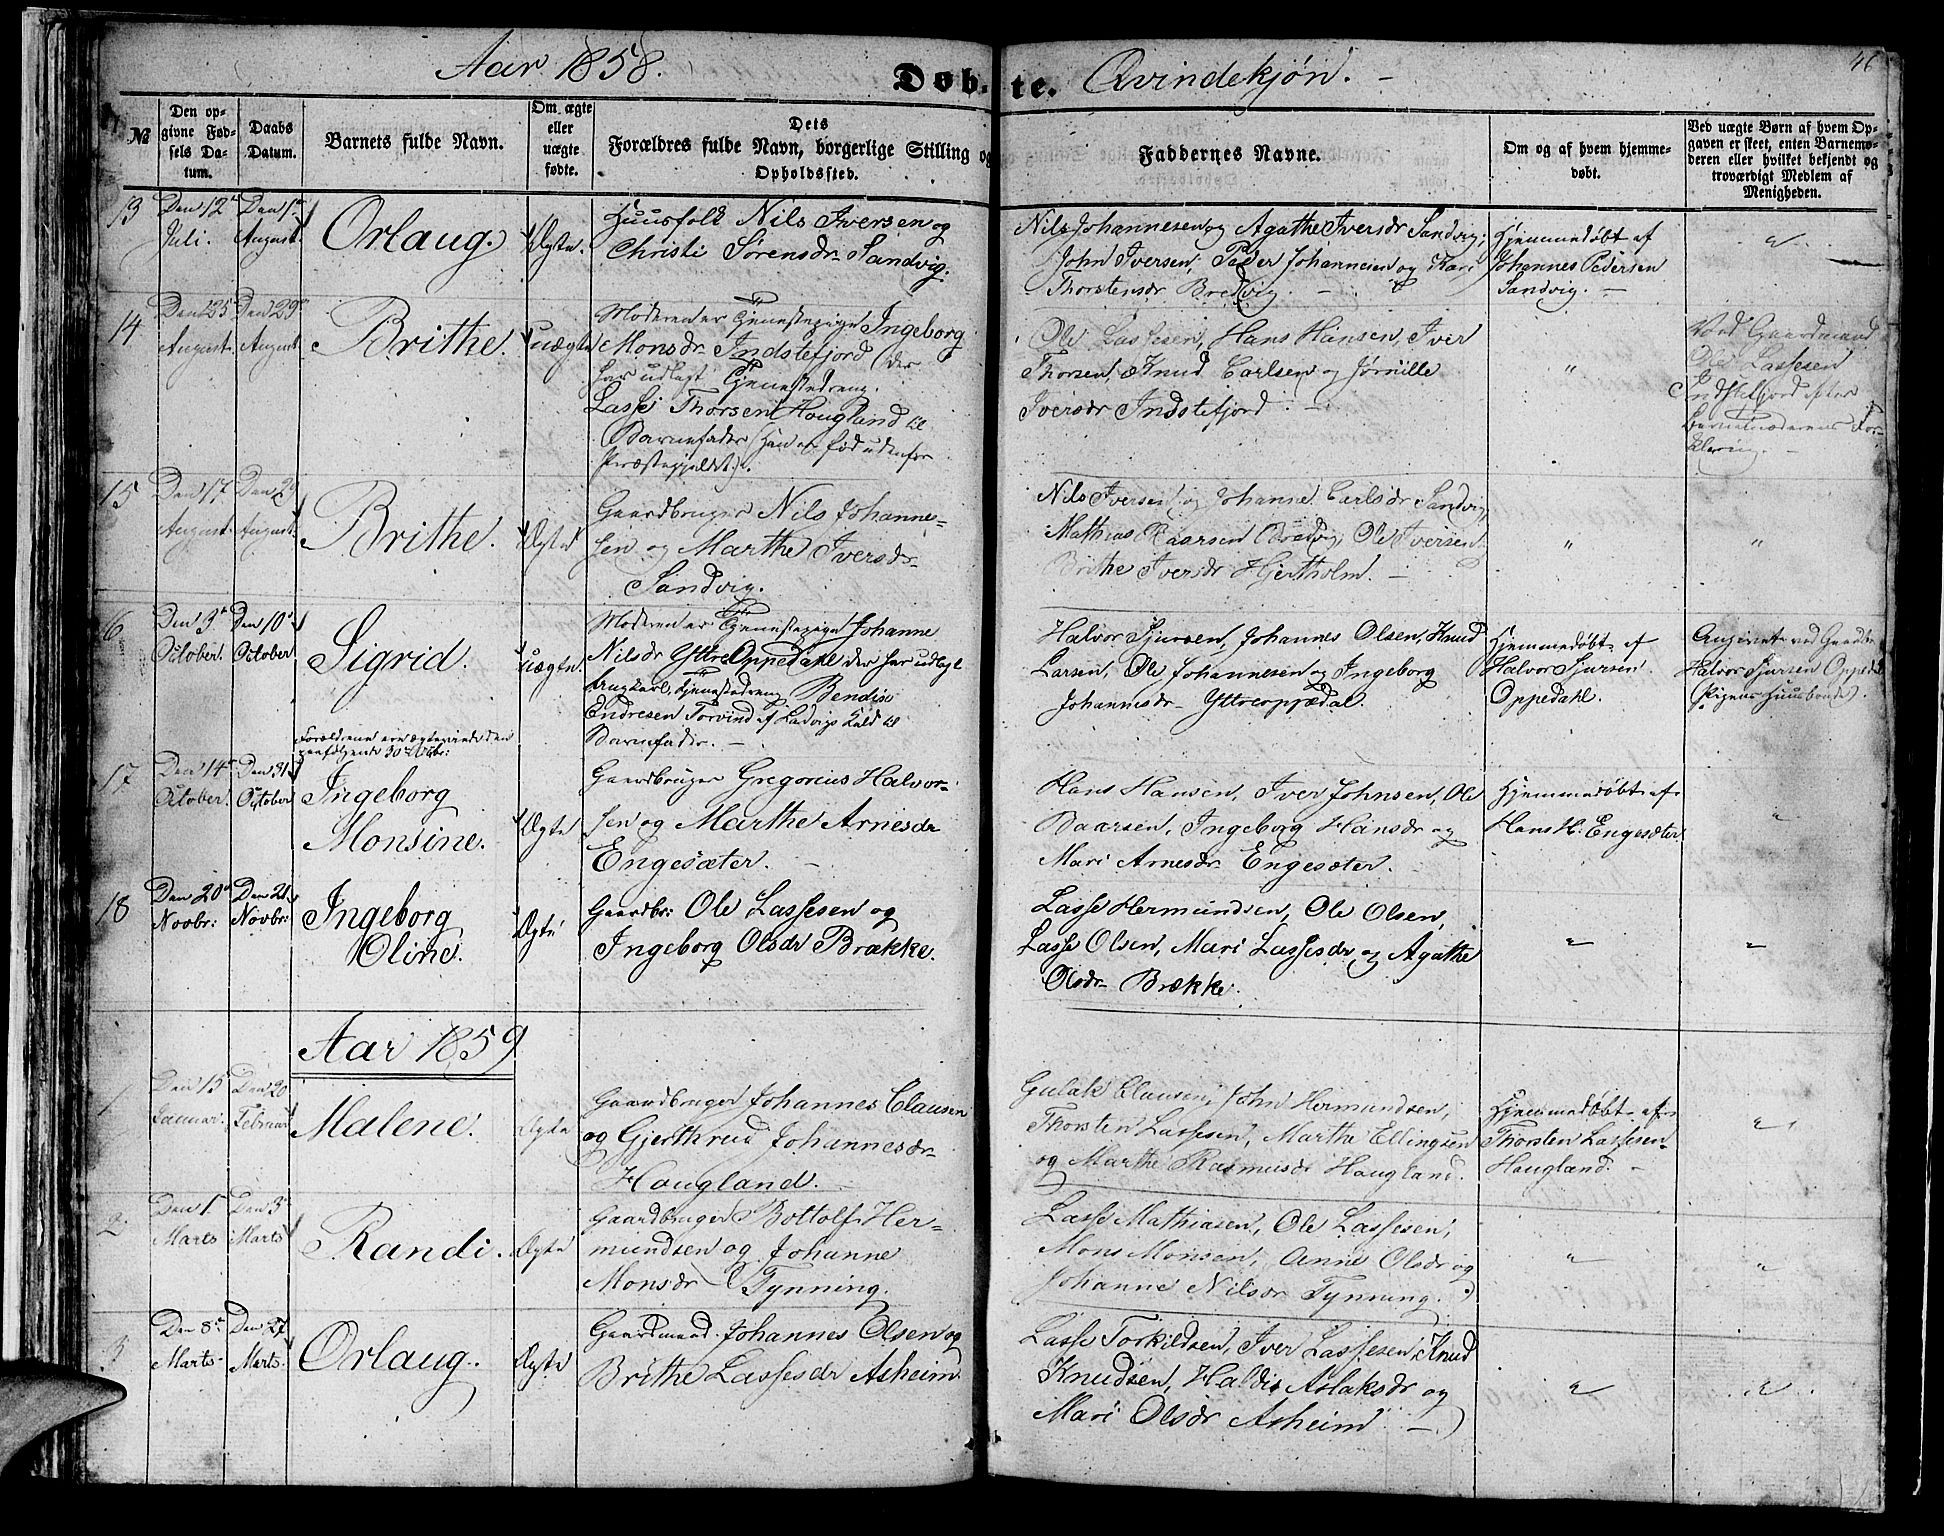 Aar 1858.
Døbte.
Qvindekjøn.
46
№
Den opgivne Fødsels Datum.
Daabs Datum.
Barnets fulde Navn.
Om ægte eller uægte fødte.
Dets Forældres fulde Navn, borgerlige Stilling og Opholdssted.
Faddernes Navne.
Om og af hvem hjemmedøbt.
Ved uægte Børn af hvem Opgaven er skeet, enten Barnemoderen eller hvilket bekjendt og troværdigt Medlem af Menigheden.
13
Den 12te Juli.
Den 1ste August.
Orlaug.
Ægte.
Huusfolk Nils Iversen og
Christi Sørensdr Sandvig.
Nils Johannesen og Agathe Iversdr Sandvig,
John Iversen, Peder Johannesen og Kari
Thorstensdr Bredvig.
Hjemmedøbt af
Johannes Pedersen
Sandvig.
"
14
Den 25 August.
Den 29de August
Brithe.
uægte
Moderen er Tjenestepige Ingeborg
Monsdr Indstefjord der
har udlagt Tjenestedreng
Lasse Thorsen Hougland til
Barnefader (Han er fød udenfor
Præstegjeldet).
Ole Lassesen, Hans Hansen, Iver
Thorsen, Knud Carlsen og Jørnille
Iversdr Indstefjord.
"
Ved Gaardmand
Ole Lassesen
Indstefjord efter
Barnemoderens For-
klaring.
15
Den 17 August.
Den August.
Brithe.
Ægte
Gaardbruger Nils Johanne-
sen og Marthe Iversdr
Sandvig.
Nils Iversen og Johanne Carlsdr Sandvig,
Mathias Baarsen Bredvig, Ole Iversen
Brithe Iversdr Hjertholm.
"
"
16
Den 3die October.
Den 10de October
Sigrid.
uægte
Moderen er Tjenestepige Johanne
Nilsdr Yttre Oppedahl der har udlagt
Ungkarl, Tjenestedreng Bendix
Endresen Torvind af Ladvigs Kald til
Barnefader.
Halvor Sjursen, Johannes Olsen, Knud
Larsen, Ole Johannesen og Ingeborg
Johannesdr Yttreoppedal.
Hjemmedøbt af
Halvor Sjursen
Oppedahl.
Angivet ved Gaardbr
Halvor Sjursen Oppedal
(Pigens Huusbonde).
Forældrene ere ægteviede den
paafølgende 30te Octbr:
17
Den 14de October.
Den 31te October
Ingeborg
Monsine.
Ægte
Gaardbruger Gregorius Halvor-
sen og Marthe Arnesdr
Engesæter.
Hans Hansen, Iver Johnsen, Ole
Baarsen, Ingeborg Hansdr og
Mari Arnesdr Engesæter.
Hjemmedøbt af
Hans H: Engesæter.
"
18
Den 20de Novbr:
Den 21 Novbr:
Ingeborg
Oline.
Ægte
Gaardbr: Ole Lassesen og
Ingeborg Olsdr Brække.
Lasse Hermundsen, Ole Olsen,
Lasse Olsen, Mari Lassesdr og Agathe
Olsdr Brække.
"
"
Aar 1859
1
Den 15 Januar.
Den 20 Februar
Malene.
Ægte
Gaardbruger Johannes Clausen
og Gjerthrud Johannesdr
Hougland.
Gulak Clausen, John Hermundsen,
Thorsten Lassesen, Marthe Ellingsen
og Marthe Rasmusdr Haugland.
Hjemmedøbt af
Thorsten Lassesen
Haugland.
"
2.
Den 1 Marts
Den 3die Marts
Randi.
Ægte
Gaardbruger Bottolf Her-
mundsen og Johanne
Monsdr Tynning.
Lasse Mathiasen, Ole Lassesen,
Mons Monsen, Anne Olsdr og
Johanne Nilsdr Tynning.
"
"
3
Den 8de Marts
Den 27 Marts.
Orlaug.
Ægte
Gaardmand Johannes Olsen og
Brithe Lassesdr Asheim
Lasse Torkildsen, Iver Lassesen, Knud
Knudsen, Haldis Aslaksdr og
Mari Olsdr Asheim
"
"